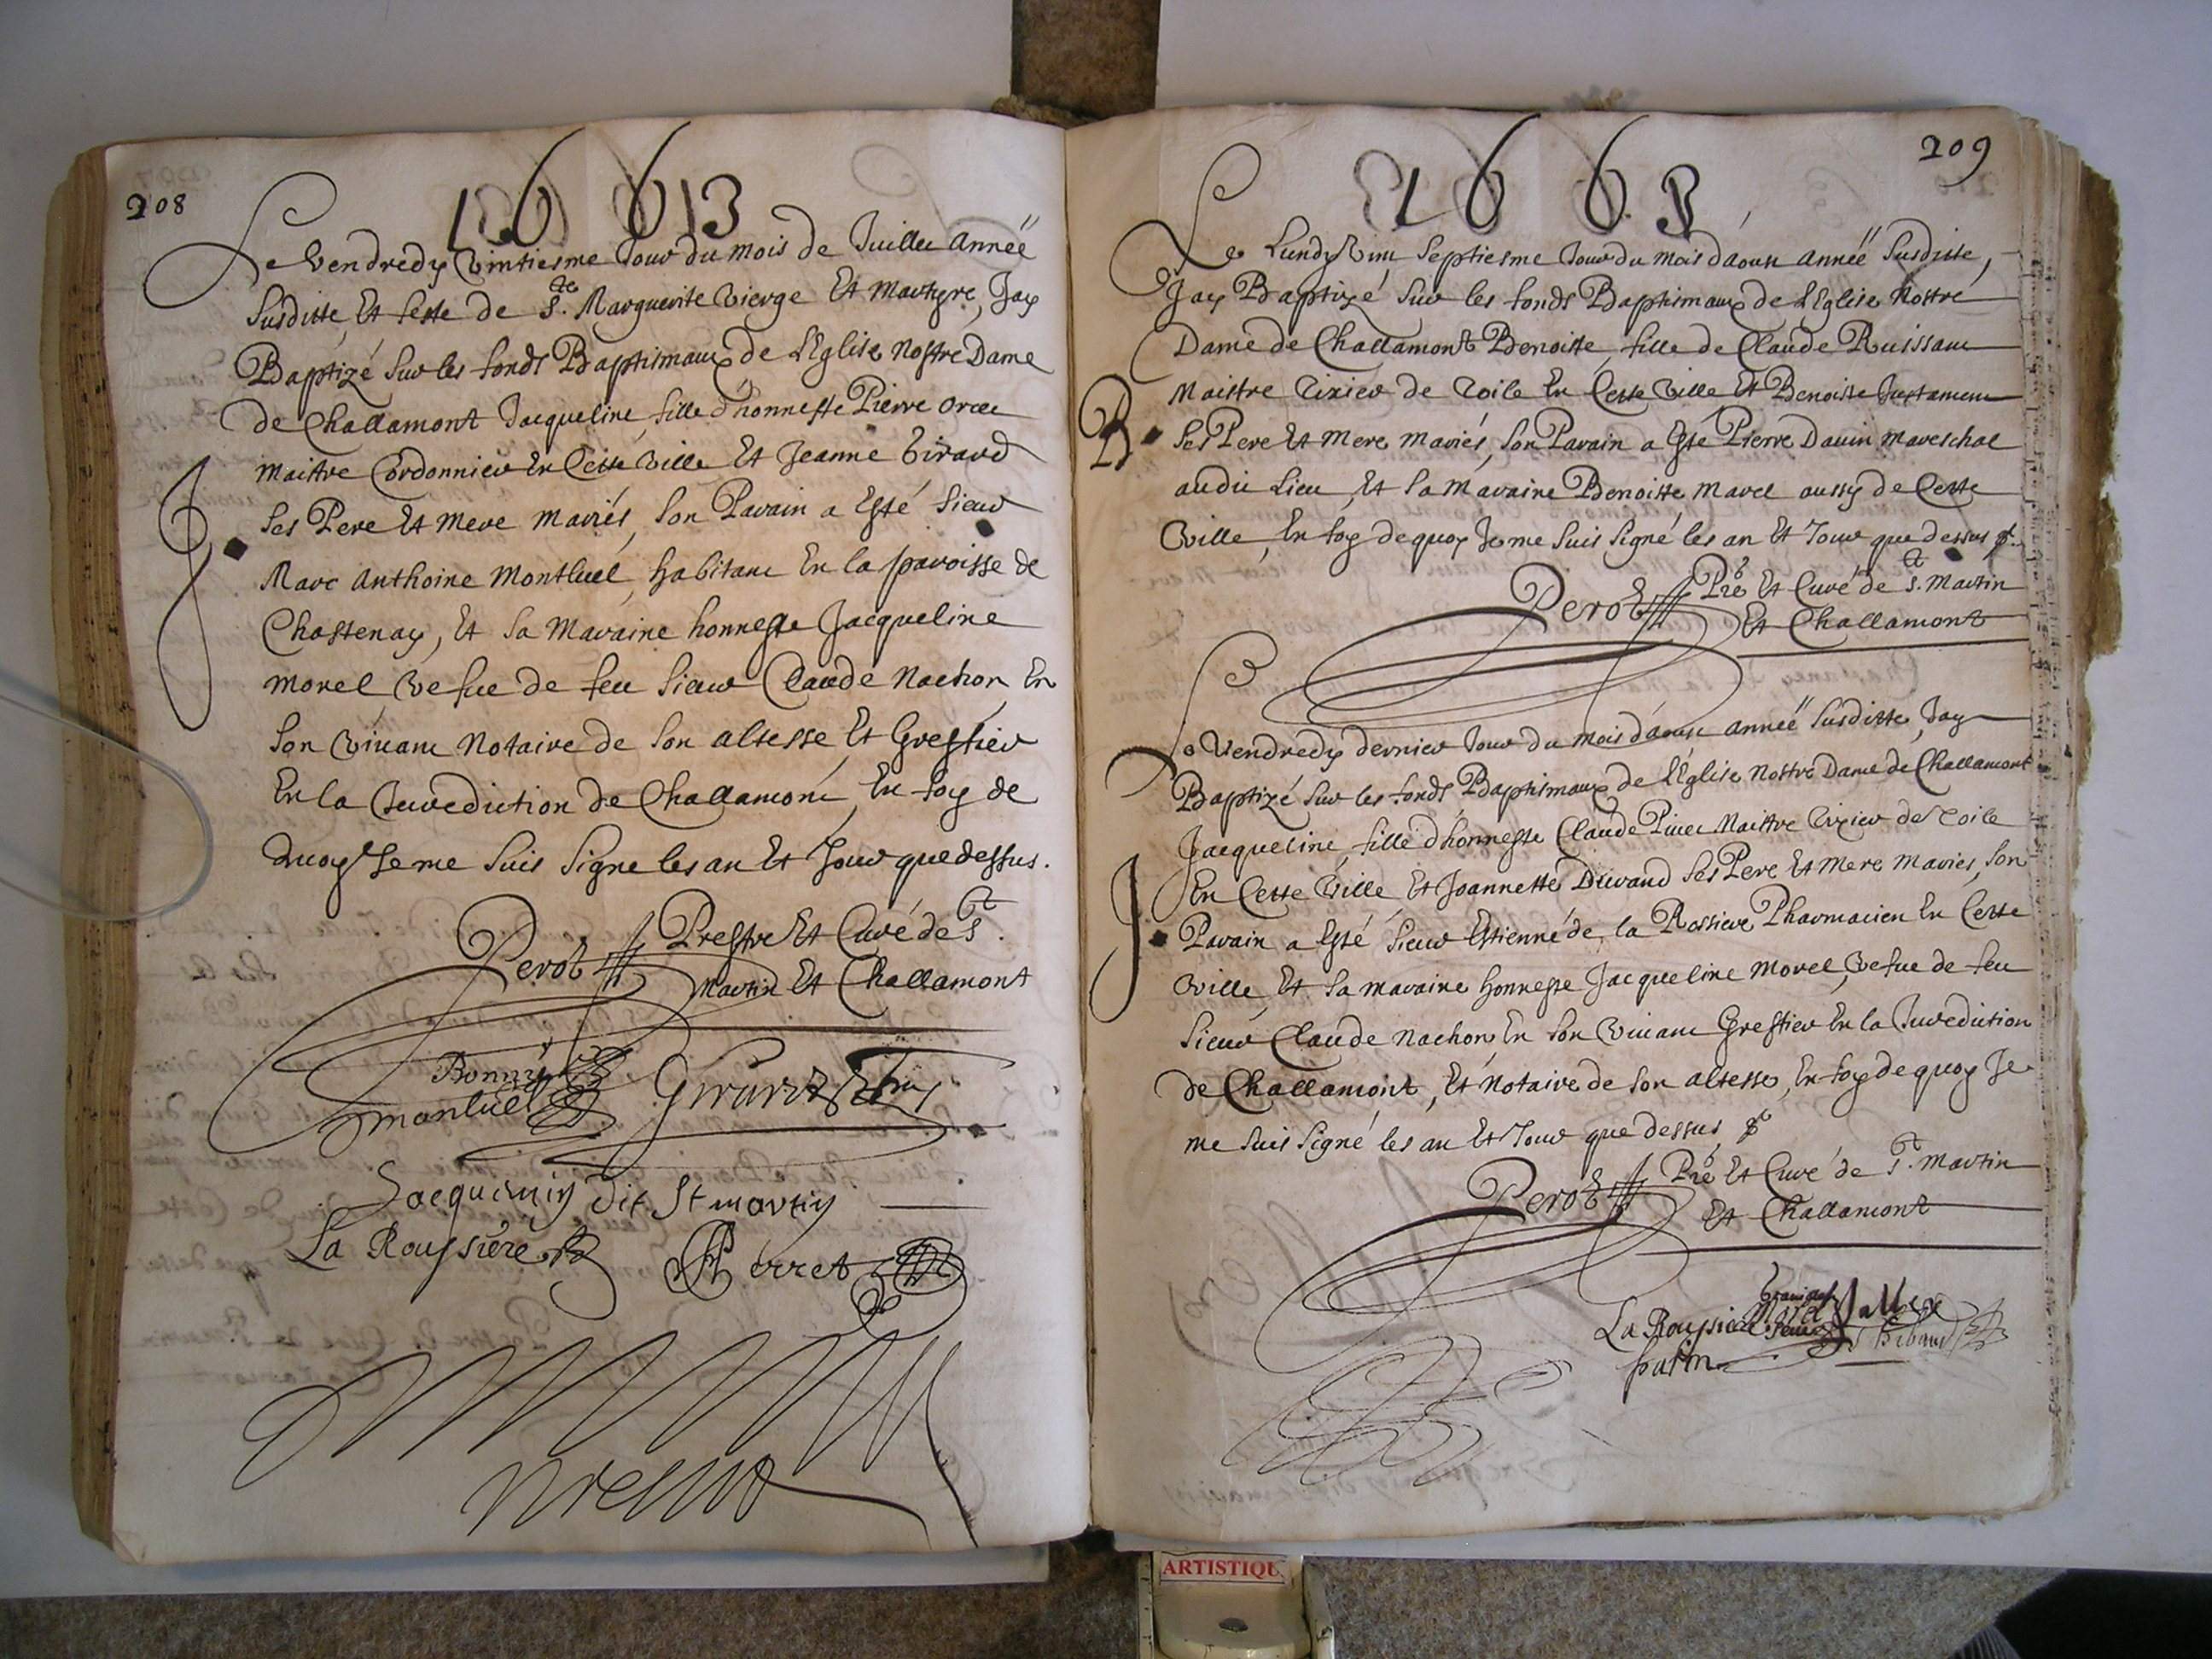 208
1663
Le Vendredy Vintiesme Jour du mois de Juillet Anneë
Susditte, Et feste de Ste. Marguerite Vierge Et Martyre, Jay
Baptizé Sur les fonds Baptismaux de LEglise Nostre Dame
de Challamont Jacqueline, fille d'honneste Pierre
Maistre Cordonnier En Cette Ville Et Jeanne Girard
Ses Pere Et Mere Mariés, Son Parain a Esté Sieur
J.
Marc Anthoine Montluel, habitant En la paroisse de
Chastenay, Et Sa Maraine honneste Jacqueline
Morel Vefue de feu Sieur Claude Nachon En
Son Viuant Notaire de Son Altesse Et Greffier
En la Jurediction de Challamont, En foy de
quoy Je me Suis Signe les an Et Jour que dessus.
Perot Prestre Et Curé de St.
Martin Et Challamont
monluel
Jacquemin dit St martin
La Roussiere
Perret
209
1663
Le Lundy Vint Septiesme Jour du mois d'aoust anneë Susditte,
Jay Baptizé Sur les fonds Baptismaux de LEglise Nostre
Dame de Challamont Benoitte, fille de Claude Ruissant
Maistre Tixier de Toile En Cette Ville Et Benoitte
B.
Ses Pere Et Mere Mariés, Son Parain a Esté Pierre Dauin Mareschal
audit Lieu, Et Sa Maraine Benoitte Marel aussy de Cette
Ville, En foy dequoy Je me Suis Signé les an Et Jour que dessus
Perot Pre Et Curé de St. Martin
Et Challamont
Le Vendredy dernier Jour du mois d'aoust anneë Susditte, Jay
Baptizé Sur les fonds Baptismaux de LEglise Nostre Dame de Challamont
Jacqueline, fille d'honneste Claude Maistre Tixier de Toile
En Cette Ville Et Joannette Durand Ses Pere Et Mere Mariés, Son
J.
Parain a Esté Sieur Estienne de la Rossiere Pharmacien En Cette
Ville, Et Sa Maraine honneste Jacqueline Morel, Vefue de feu
Sieur Claude Nachon En Son Viuant Greffier En la Jurediction
de Challamont, Et Notaire de Son Altesse, En foy de quoy Je
me Suis Signé les an Et Jour que dessus
Perot Pre Et Curé de St. Martin
Et Challamont
La Roussiere
ARTISTIQU